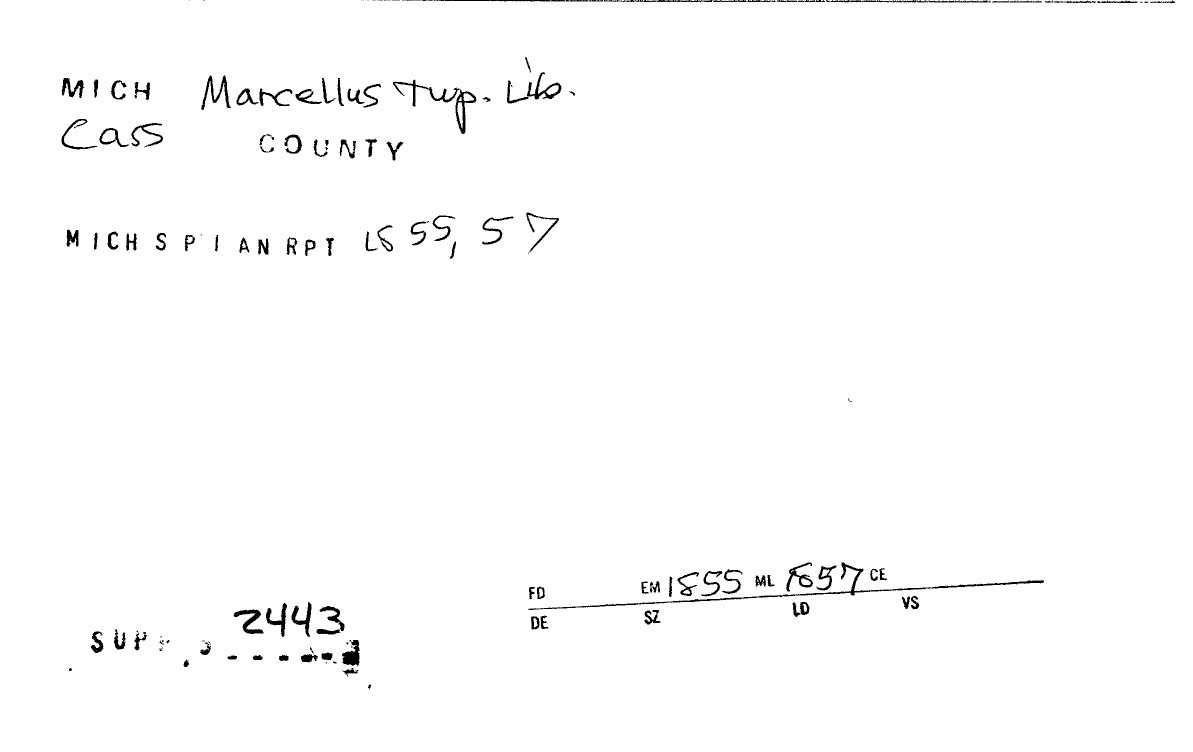 MICH Marcellus Twp. Lib.
Cass COUNTY
MICH S P I AN RPT 1855, 57
FD EM 1855 ML 1857 CE
DE SZ LD VS
2443